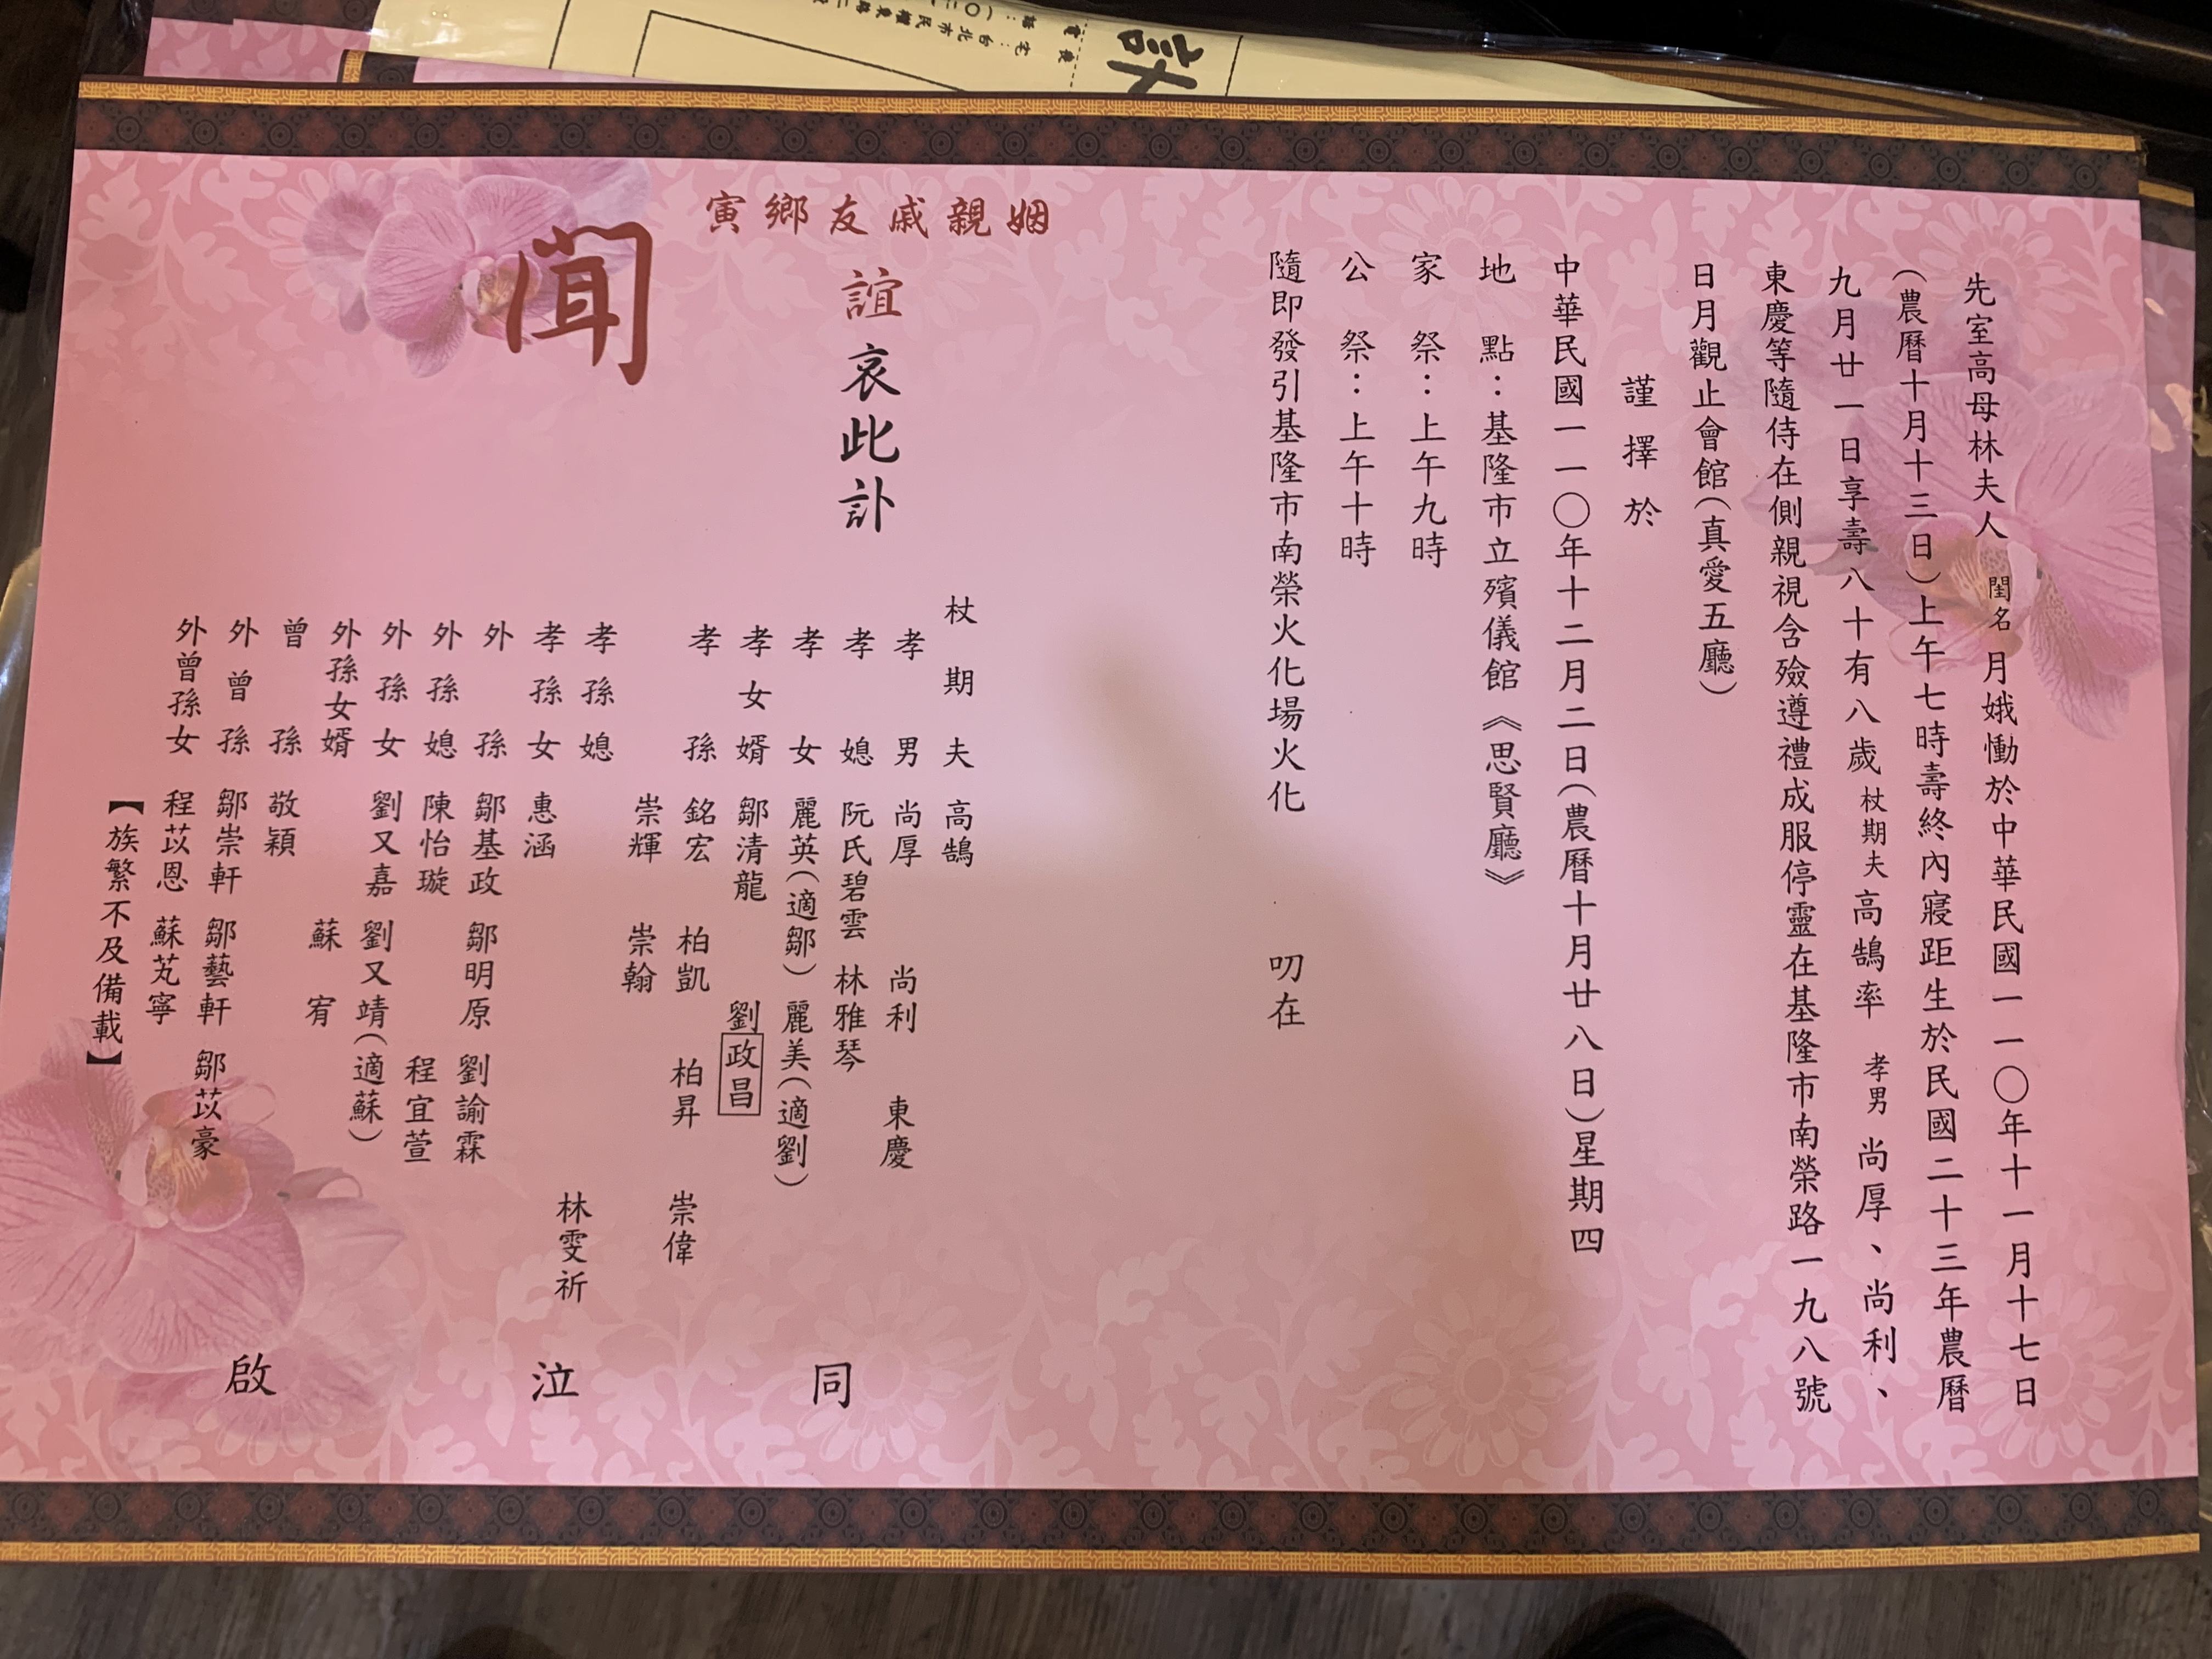 先室高母林夫人閨名月娥慟於中華民國一一〇年十一月十七日
(農曆十月十三日)上午七時壽終內寢距生於民國二十三年農曆
九月廿一日享壽八十有八歲杖期夫高鵠率孝男尚厚、尚利、
東慶等隨侍在側親視含殮遵禮成服停靈在基隆市南榮路一九八號
日月觀止會館(真愛五廳)
謹擇於
中華民國一一〇年十二月二日(農曆十月廿八日)星期四
地點：基隆市立殯儀館《思賢廳》
家祭：上午九時
公祭：上午十時
隨即發引基隆市南榮火化場火化 叨在
姻親戚友鄉寅
誼哀此訃
聞
杖期夫 高鵠
孝男 尚厚 尚利 東慶
孝媳 阮氏碧雲 林雅琴
孝女 麗英(適鄒) 麗美(適劉)
孝女婿 鄒清龍 劉政昌
孝孫 銘宏 柏凱 柏昇 崇偉
崇輝 崇翰
孝孫媳 林雯祈
孝孫女 惠涵
外孫 鄒基政 鄒明原 劉諭霖
外孫媳 陳怡璇 程宜萱
外孫女 劉又嘉 劉又靖(適蘇)
外孫女婿 蘇宥
曾孫 敬穎
外曾孫 鄒崇軒 鄒藝軒 鄒苡豪
外曾孫女 程苡恩 蘇芄寧
【族繁不及備載】
同泣啟
訃
台北市民權東路二